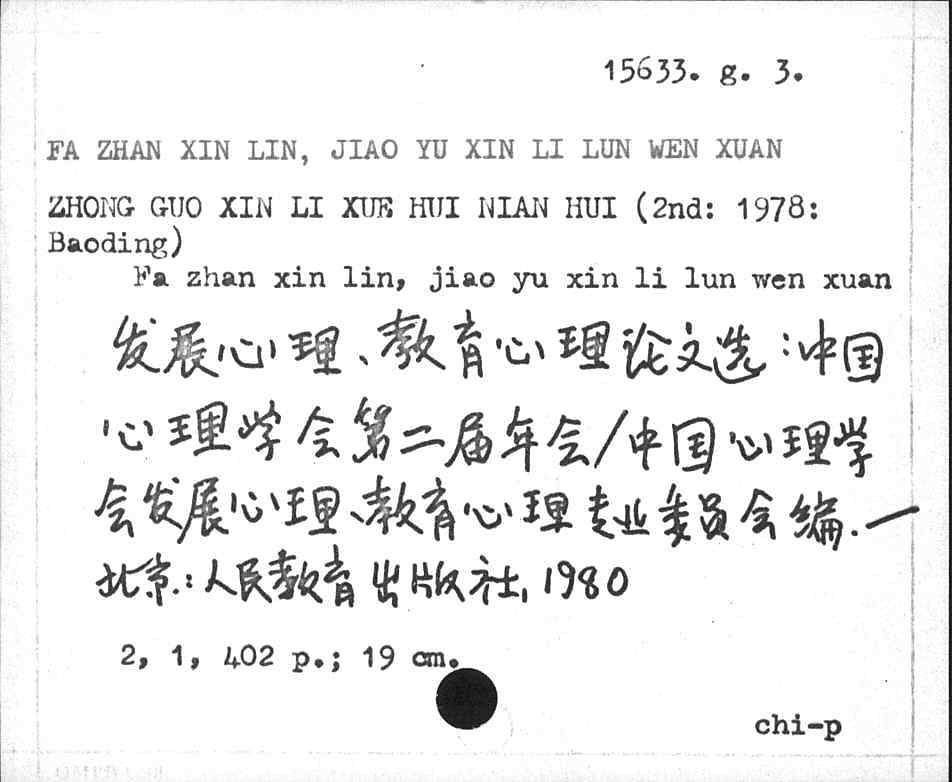 15633. g. 3.
FA ZHAN XIN LIN, JIAO YU XIN LI LUN WEN XUAN
ZHONG GUO XIN LI XUE HUI NIAN HUI (2nd: 1978:
Baoding)
Fa zhan xin lin, jiao yu xin li lun wen xuan
发展心理、教育心理论文选:中国
心理学会第二届年会/中国心理学
会发展心理、教育心理专业委员会编.—
北京.:人民教育出版社, 1980
2, 1, 402 p.; 19 cm.
chi-p